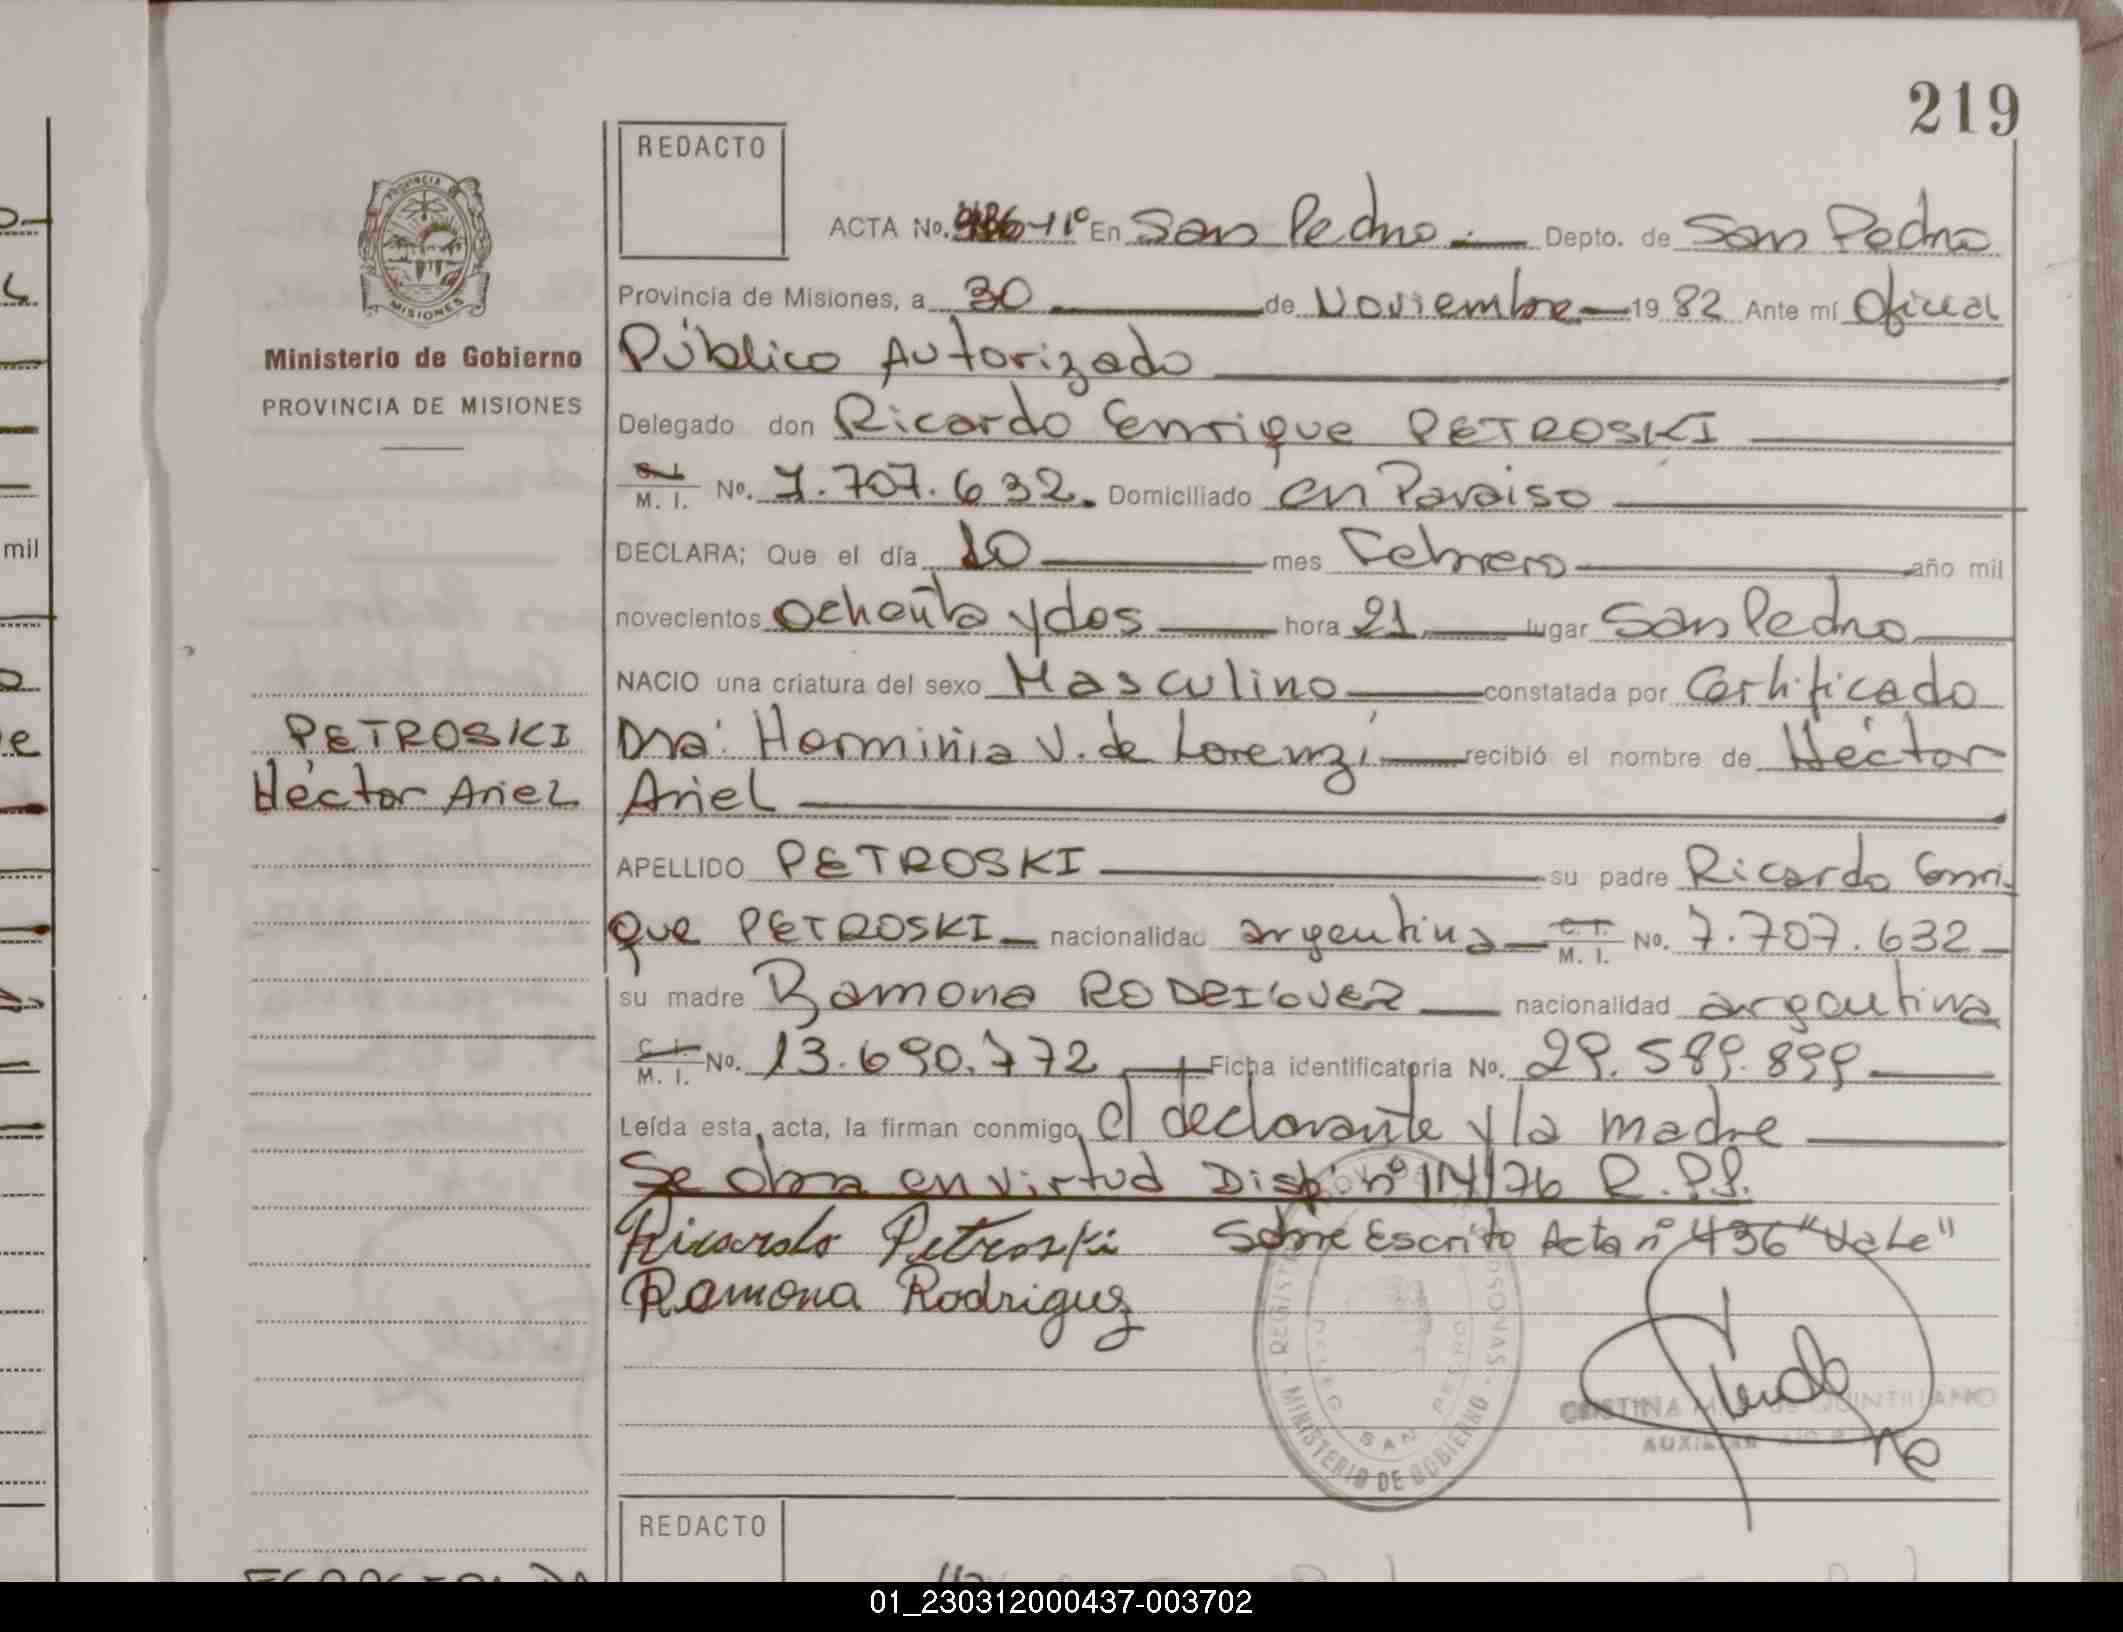 219
REDACTO
ACTA No. 436-11º En San Pedro Depto. de San Pedro
Provincia de Misiones, a 30 de Noviembre 1982 Ante mí Oficial
Público Autorizado
Delegado don Ricardo Enrique PETROSKI
M. I. No. 7.707.632. Domiciliado en Paraiso
DECLARA; Que el día 10 mes Febrero año mil
novecientos ochenta y dos hora 21 lugar San Pedro
NACIO una criatura del sexo Masculino constatada por Certificado
Dra. Herminia V. de Lorenzi recibió el nombre de Héctor
Ariel
APELLIDO PETROSKI su padre Ricardo Enri-
que PETROSKI nacionalidad argentina C. I. M. I. No. 7.707.632
su madre Ramona RODRIGUEZ nacionalidad argentina
C. I. M. I. No. 13.690.772 Ficha identificatoria No. 29.589.899
Leída esta acta, la firman conmigo el declarante y la madre
Se obra en virtud Disp. nº 114/76 R.P.P.
Ricardo Petroski Sobre Escrito Acta nº 436 "Vale"
Ramona Rodriguz
MINISTERIO DE GOBIERNO
SAN
CRISTINA
AUXILIAR
PROVINCIA DE
MISIONES
Ministerio de Gobierno
PROVINCIA DE MISIONES
PETROSKI
Héctor Ariel
mil
REDACTO
01_230312000437-003702